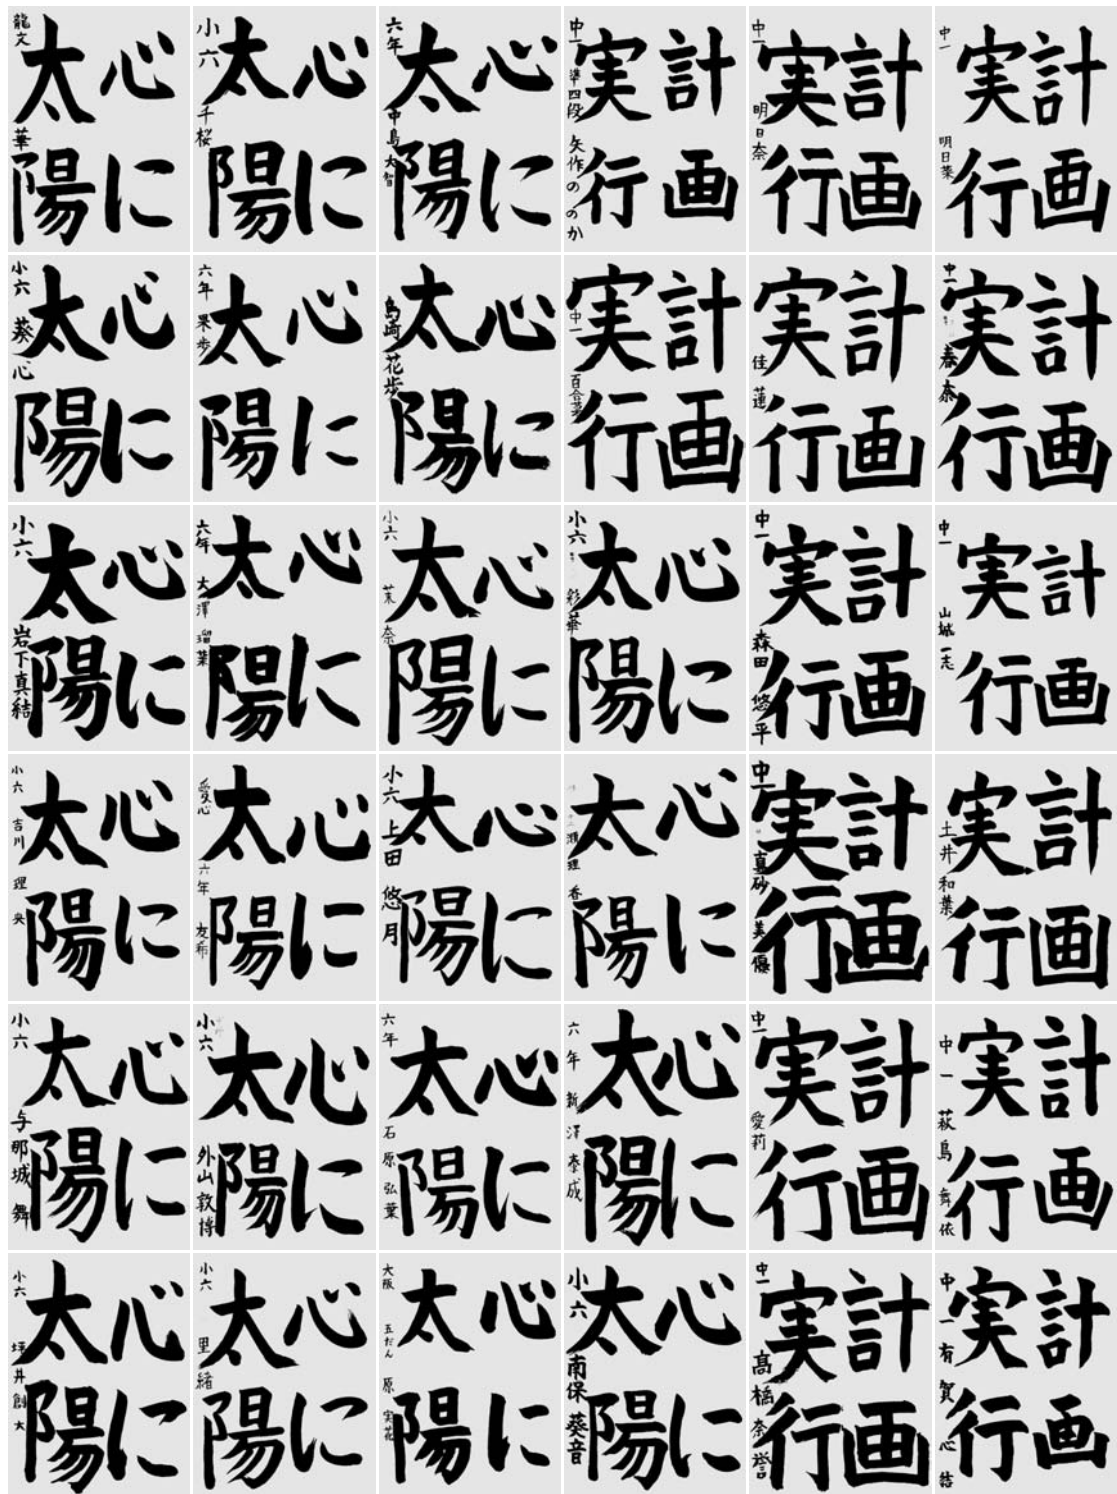 心に
太陽
龍文 華
心に
太陽
小六 千桜
心に
太陽
六年 中島大智
計画
実行
中一 準四段 矢作ののか
計画
実行
中一 明日奈
計画
実行
中一 明日葉
心に
太陽
小六 葵心
心に
太陽
六年 果歩
心に
太陽
島崎 花歩
計画
実行
中一 百合菜
計画
実行
佳蓮
計画
実行
中一 春奈
心に
太陽
小六 岩下真結
心に
太陽
六年 大澤 瑠葉
心に
太陽
小六 茉奈
心に
太陽
小六 彩華
計画
実行
中一 森田 悠平
計画
実行
中一 山城一志
心に
太陽
小六 吉川 理央
心に
太陽
愛心 六年 友希
心に
太陽
小六 上田 悠月
心に
太陽
理香
計画
実行
中一 真砂 美優
計画
実行
土井和葉
心に
太陽
小六 与那城 舞
心に
太陽
小六 外山敦博
心に
太陽
六年 石原弘葉
心に
太陽
六年 新澤泰成
計画
実行
中一 愛莉
計画
実行
中一 萩島 舞依
心に
太陽
小六 坪井創大
心に
太陽
小六 里緒
心に
太陽
大阪 五だん 原 実花
心に
太陽
小六 南保 葵音
計画
実行
中一 髙橋奈誉
計画
実行
中一 有賀 心結